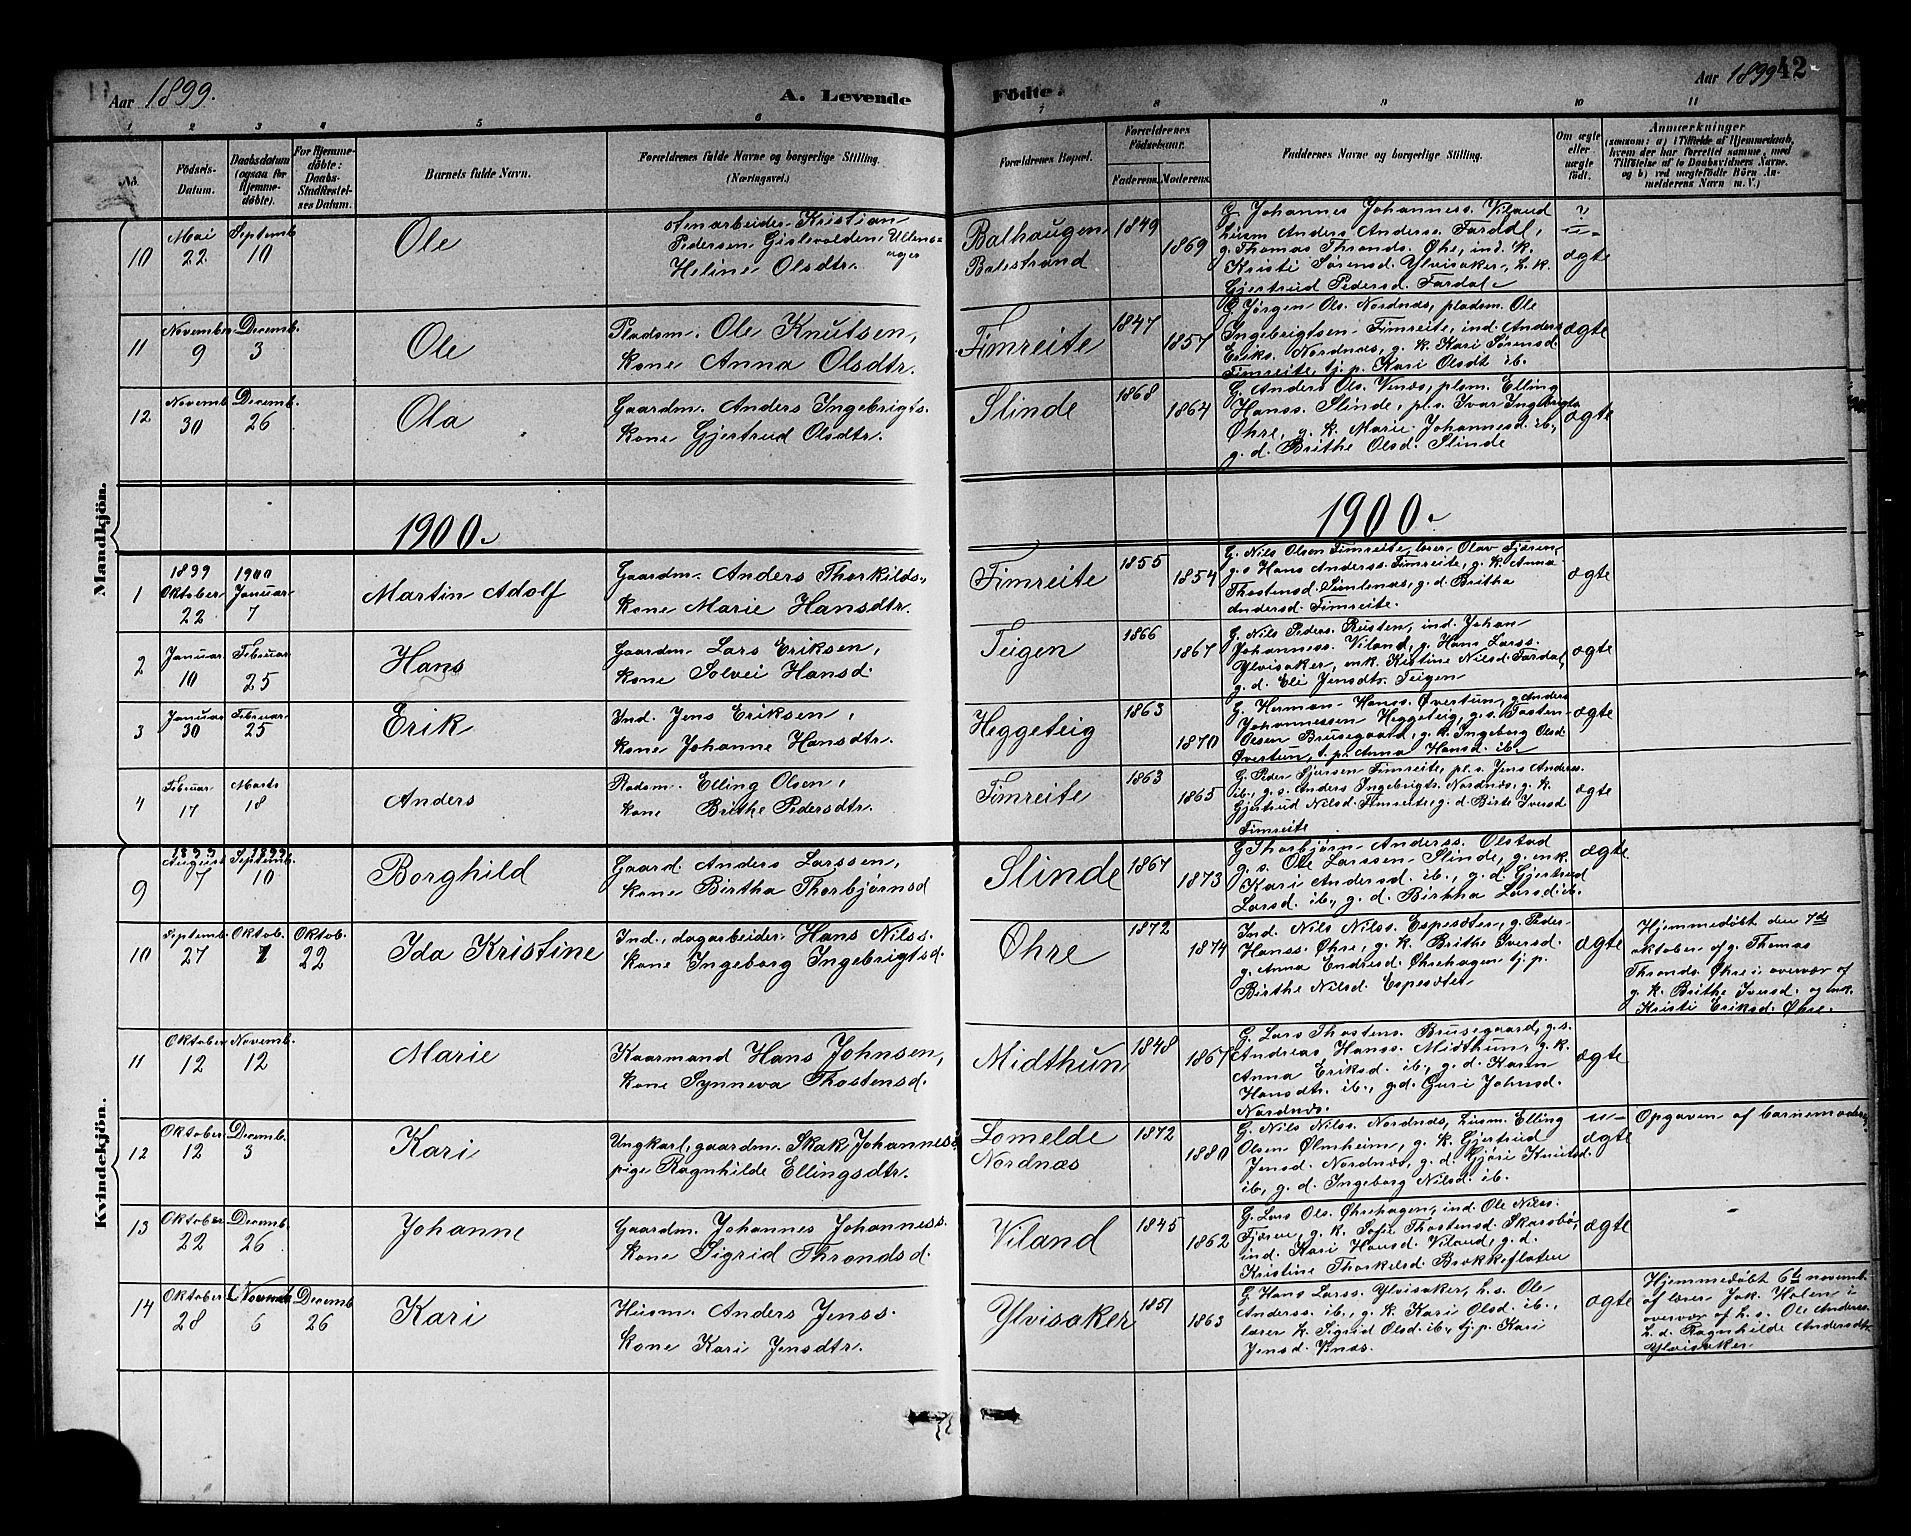 Aar 1899. A. Levende Födte. Aar 1899 42
1 2 3 4 5 6 7 8 9 10 11
No.
Födsels-Datum.
Daabsdatum (ogsaa for Hjemmedöbte).
For Hjemmedöbte: Daabs-Stadfæstelses Datum.
Barnets fulde Navn.
Forældrenes fulde Navne og borgerlige Stilling.
(Næringsvei.)
Forældrenes Bopæl.
Forældrenes Födselsaar.
Faderens. Moderens.
Faddernes Navne og borgerlige Stilling.
Om ægte eller uægte födt.
Anmærkninger
(saasom: a) i Tilfælde af Hjemmedaab, hvem der har forrettet samme, med Tilföielse af to Daabsvidners Navne. og b) ved uægtefödte Börn Anmelderens Navn m. V.)
Mandkjön.
10 Mai 22. Septemb. 10
Ole
Stenarbeider Kristian
Pedersen Gislevolden, Ullensager
Heline Olsdtr.
Balhaugen
Balestrand
1849 1869
G. Johannes Johanness. Viland
Husm Anders Anderss. Fardal,
g. Thomas Thronds. Øhre, ind. k.
Kristi Sørensd. Ylvisaker, h. k.
Gjertrud Pedersd. Fardal
?
u-
ægte
11 November 9 Decemb. 3
Ole
Pladsm. Ole Knutsen,
Kone Anna Olsdtr.
Fimreite
1847 1857
G. Jørgen Ols. Nordnæs, pladsm. Ole
Ingebrigtsen Fimreite, ind. Anders
Eriks. Nordnæs, g. k. Kari Sørensd.
Fimreite, tj. p. Kari Olsdt ib.
ægte
12 Novemb. 30 Decemb. 26
Ola
Gaardm. Anders Ingebrigts.
Kone Gjertrud Olsdtr.
Slinde
1868 1864
G. Anders Ols. Venæs, plsm. Elling
Hanss. Slinde, pl. s. Ivar Ingebrigts
Øhre, g. k. Marie Johannesd. ib.,
g. d. Brithe Olsd. Slinde
ægte
1900. 1900.
1 1899 Oktober 22 1900 Januar 7
Martin Adolf
Gaardm. Anders Thorkilds.,
Kone Marie Hansdtr.
Fimreite
1855 1854
G. Nils Olsen Fimreite, lærer Olav Fjæren,
g. s Hans Anderss. Fimreite, g. k. Anna
Thostensd. Simlenæs, g. d. Britha
Andersd. Fimreite.
ægte
2 Januar 10 Februar 25
Hans
Gaardm. Lars Eriksen,
Kone Solvei Hansd.
Teigen
1866 1867
G. Nils Peders. Rusten, ind. Johan
Johanness. Viland, g. Hans Larss.
Ylvisaker, enk. Kistine Nilsd. Fardal
g. d. Eli Jensdtr. Teigen
ægte
3 Januar 30 Februar 25
Erik
Ind. Jens Eriksen,
Kone Johanne Hansdtr.
Heggeteig
1863 1870
G. Herman Hanss. Øvertun, g. Anders
Johannessen Heggeteig, g. s. Tosten
Olsen Brusegaard, g. k. Ingeborg Olsd
Øvertun, t. p. Anna Hansd. ib.
ægte
4 Februar 17 Marts 18
Anders
Pladsm. Elling Olsen,
Kone Brithe Pedersdtr.
Fimreite
1863 1865
G. Peder Sjursen Fimreite, pl. s. Jens Anders.
ib., g. s. Anders Ingebrigts. Nordnæs, g. k.
Gjertrud Nilsd. Fimreite, g. d. Birte Iversd
Fimreite
ægte
Kvindekjön.
9 1899 August 7 1899 Septemb. 10
Borghild
Gaard. Anders Larssen,
Kone Birtha Thorbjørnsd
Slinde
1867 1873
G Thorbjørn Anderss. Olstad
g. s. Ole Larssen Slinde, g. enk.
Kari Andersd ib., g. d. Gjertrud
Larsd. ib., g. d. Birtha Larsd. ib.
ægte
10 Septemb. 27 Oktob. 7 Oktob. 22
Ida Kristine
Ind., dagarbeider Hans Nilss.
Kone Ingeborg Ingebrigtsd.
Øhre
1872 1874
Ind. Nils Nilss. Espesæter, g. Peder
Hanss. Øhre, g. k. Brithe Iversd.
g. Anna Endresd. Øhrehagen tj. p.
Birthe Nilsd. Espesætet
ægte
Hjemmedøbt den 7de
oktober af g. Thomas
Thronds. Øhre i overvær af
g. k. Brithe Iversd. og enk.
Kristi Eriksd. Øhre.
11 Oktober 12 Novemb. 12
Marie
Kaarmand Hans Johnsen,
Kone Synneva Thostensd.
Midthun
1848 1867
G. Lars Thostens. Brusegaard, g. s.
Andreas Hanss. Midthun, g. k.
Anna Eriksd. ib., g. d. Karen
Hansdtr. ib., g. d. Guri Johnsd.
Nordnæs.
ægte
12 Oktober 12 Decemb. 3
Kari
Ungkarl, gaardm. Skak Johannes.
pige Ragnhilde Ellingsdtr.
Lomelde
Nordnæs
1872 1880
G. Nils Nilss. Nordnæs, husm. Elling
Olsen Ølmheim, g. k. Gjertrud
Jensd. Nordnæs, g. d. Gjøri Knutsd.
ib., g. d. Ingeborg Nilsd. ib.
u-
ægte
Opgaven af barnemoder.
13 Oktober 22 Decemb. 26
Johanne
Gaardm. Johannes Johanness.
Kone Sigrid Throndsd.
Viland
1845 1862
G. Lars Ols. Øhrehagen, ind. Ole Nilss.
Fjæren, g. k. Sofie Thostensd. Skarsbø,
ind. Kari Hansd. Viland, g. d.
Kristine Thorkelsd. Brekkeflaten
ægte
14 Oktober 28 Novemb 6 Decemb 26
Kari
Husm. Anders Jenss.
Kone Kari Jensdtr.
Ylvisaker
1851 1863
G. Hans Larss. Ylvisaker, h. s. Ole
Anderss. ib., g. k. Kari Olsd. ib.,
lærer k. Sigrid Olsd. ib., tj. p. Kari
Jensd. Venæs.
ægte
Hjemmedøbt 6te novemb.
af lærer Jak. Holen i
overvær af h. s. Ole Anderss.
h. d. Ragnhilde Andersdtr
Ylvisaker.